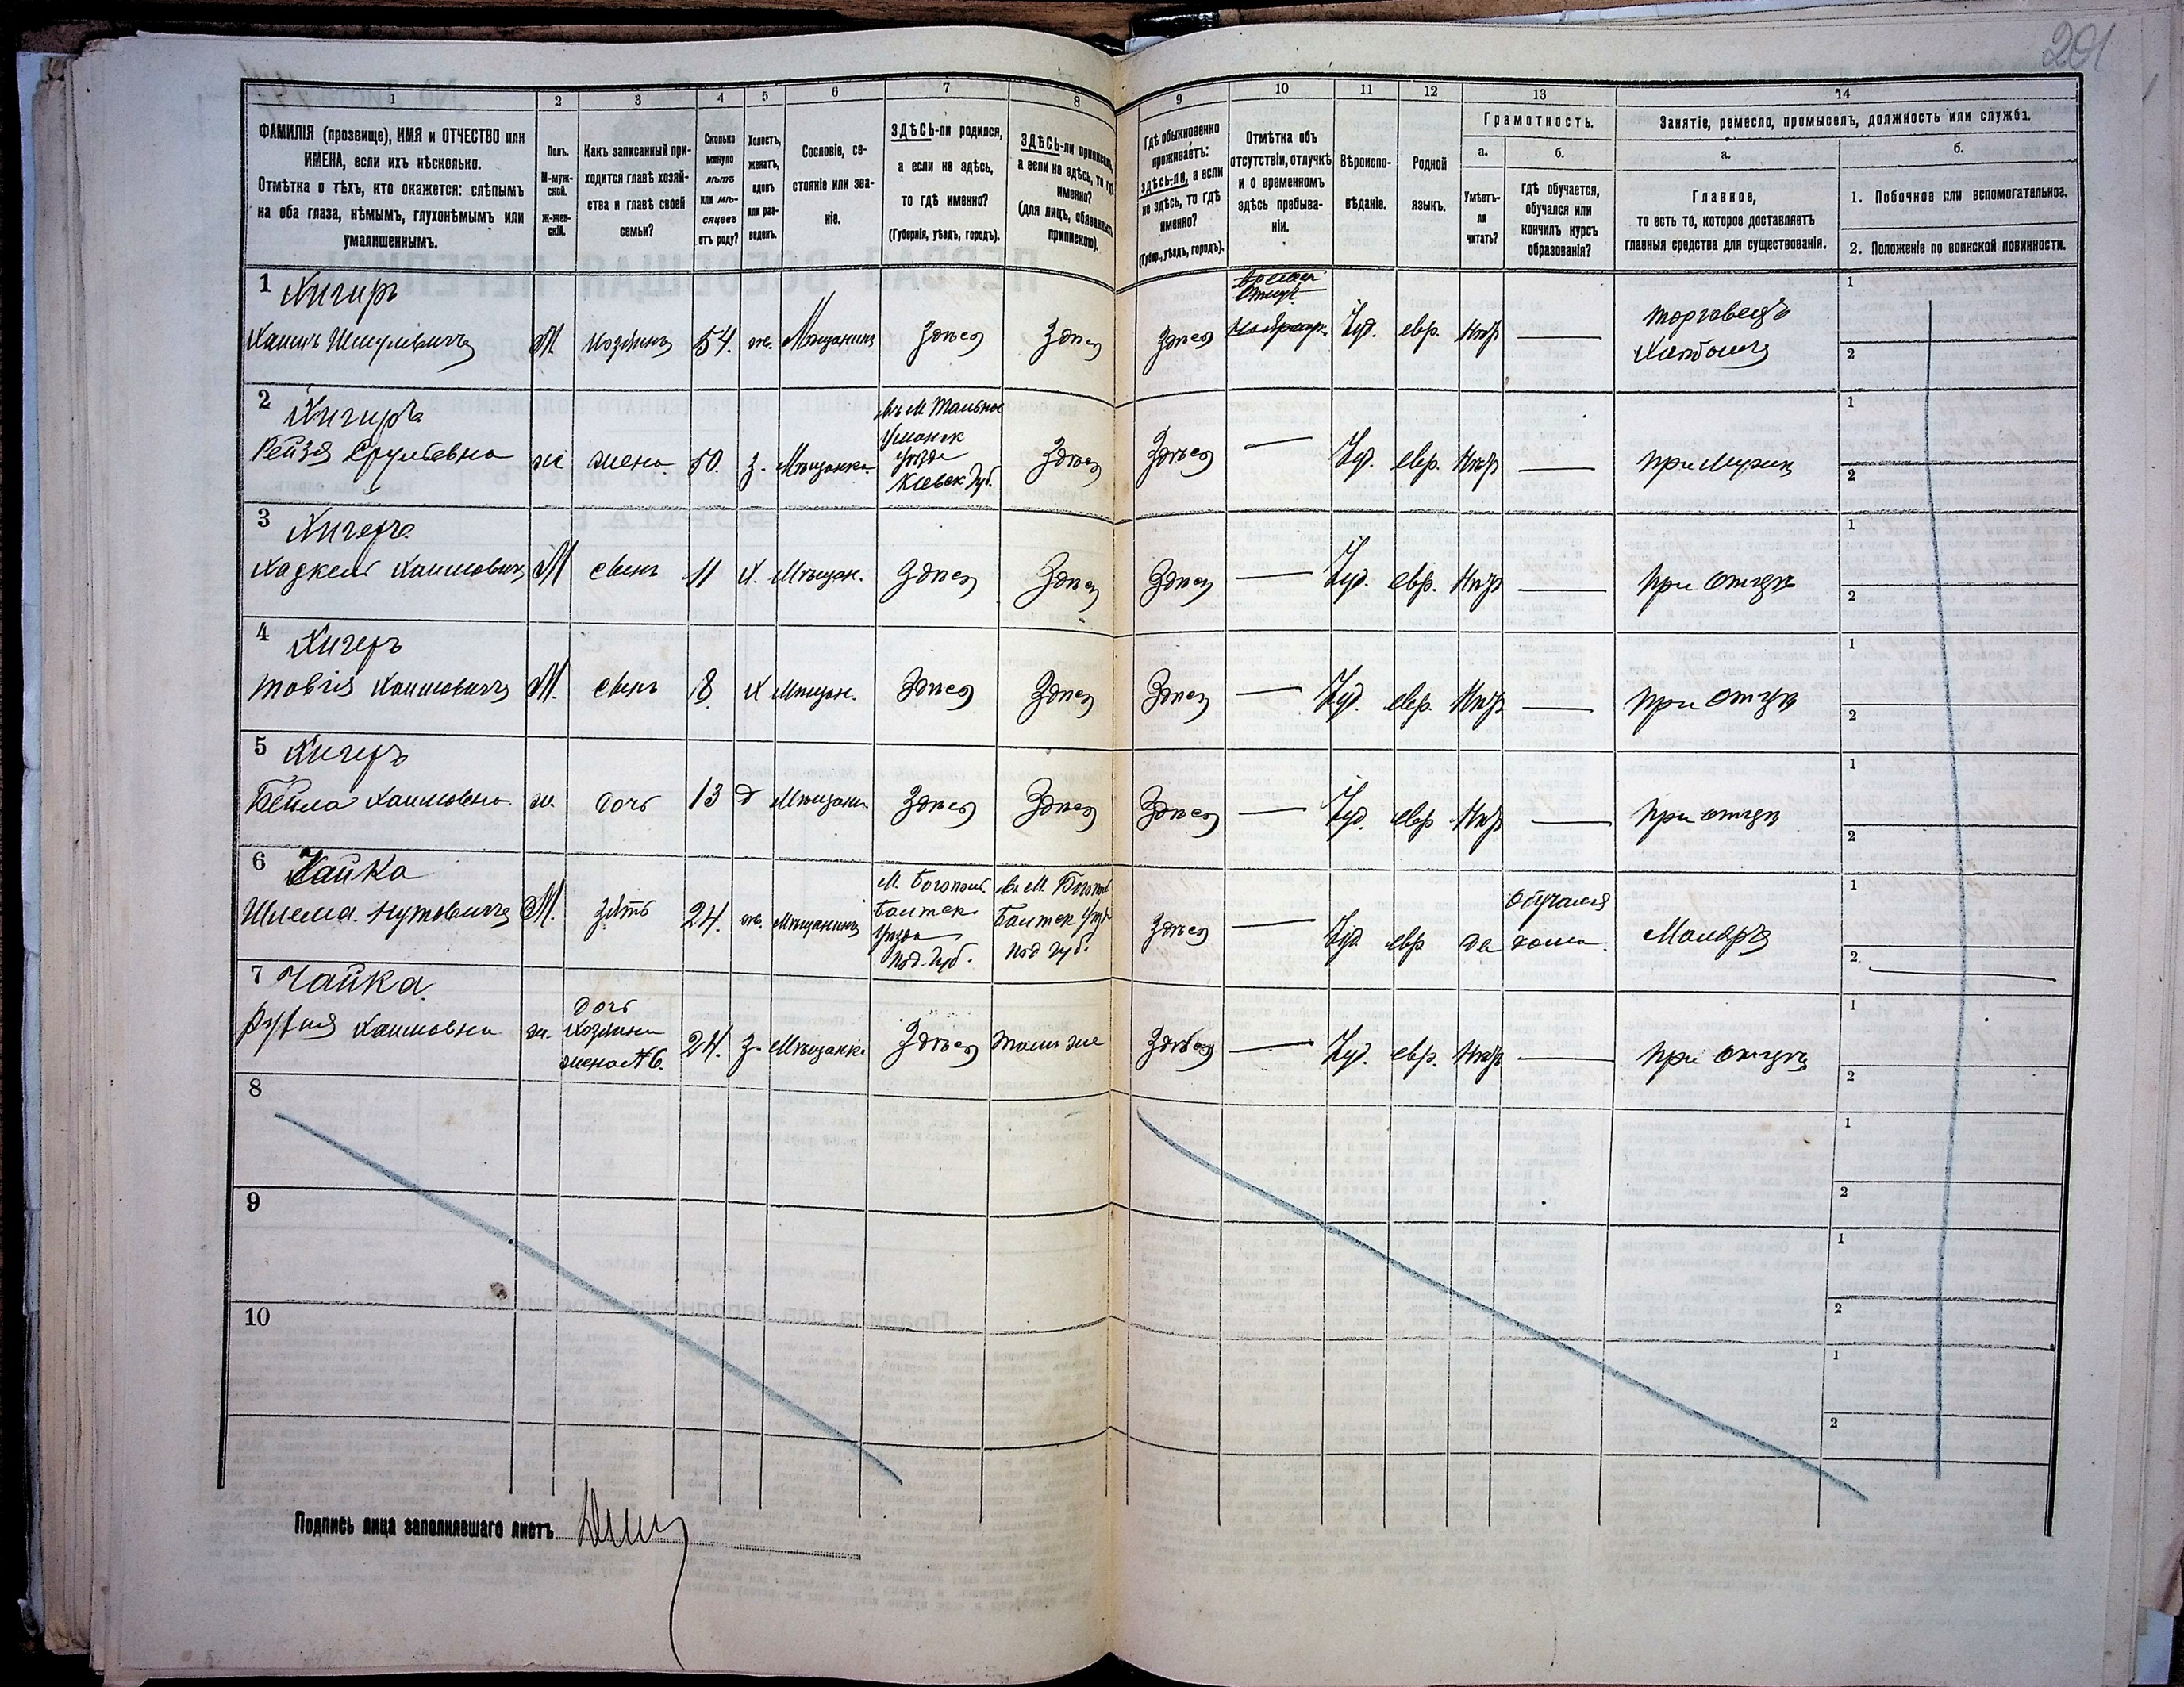 201
1 2 3 4 5 6 7 8 9 10 11 12 13 14
ФАМИЛІЯ (прозвище), ИМЯ и ОТЧЕСТВО или
ИМЕНА, если ихъ нѣсколько.
Отмѣтка о тѣхъ, кто окажется: слѣпымъ
на оба глаза, нѣмымъ, глухонѣмымъ или
умалишеннымъ.
Полъ.
М-муж-
ской.
Ж-жен-
скій.
Какъ записанный при-
ходится главѣ хозяй-
ства и главѣ своей
семьи?
Сколько
минуло
лѣтъ
или мѣ-
сяцевъ
отъ роду?
Холостъ,
женатъ,
вдовъ
или раз-
веденъ.
Сословіе, со-
стояніе или зва-
ніе.
ЗДѢСЬ-ли родился,
а если не здѣсь,
то гдѣ именно?
(Губернія, уѣздъ, городъ).
ЗДѢСЬ-ли приписанъ,
а если не здѣсь, то гдѣ
именно?
(для лицъ, обязанныхъ
припискою).
Гдѣ обыкновенно
проживаетъ:
здѣсь-ли, а если
не здѣсь, то гдѣ
именно?
(Губер., уѣздъ, городъ).
Отмѣтка объ
отсутствіи, отлучкѣ
и о временномъ
здѣсь пребыва-
ніи.
Вѣроиспо-
вѣданіе.
Родной
языкъ.
Грамотность.
а.
Умѣетъ-
ли
читать?
б.
гдѣ обучается,
обучался или
кончилъ курсъ
образованія?
Занятіе, ремесло, промыселъ, должность или служба.
а.
Главное,
то есть то, которое доставляетъ
главныя средства для существованія.
б.
1. Побочное или вспомогательное.
2. Положеніе по воинской повинности.
1 Кигиръ
Хаимъ Шмулевичъ М. хозяинъ 54. ж. Мѣщанинъ Здѣсь Здѣсь Здѣсь Іуд. евр. Нѣтъ
Торговецъ
1
2
2 Кигиръ
Рейзя Срулевна ж жена 50. з. Мѣщанка
въ М Тальное
Уманск
уѣзда
Кіевск губ.
Здѣсь Здѣсь Іуд. евр. Нѣтъ при мужѣ
1
2
3 Кигеръ
Хаскель Хаимовичъ М сынъ 11 Х. Мѣщан. Здѣсь Здѣсь Здѣсь Іуд. евр. Нѣтъ при отцѣ
1
2
4 Кигеръ
Товія Хаимовичъ М. сынъ 8 Х Мѣщан. Здѣсь Здѣсь Здѣсь Іуд. евр. Нѣтъ при отцѣ
1
2
5 Кигеръ
Бейла Хаимовна ж. дочь 13 д Мѣщанк. Здѣсь Здѣсь Здѣсь Іуд. евр Нѣтъ при отцѣ
1
2
6 Чайка
Шлема Нутовичъ М. зять 24. ж. Мѣщанинъ
М. Богополь
Балтск.
уѣзда
Под. губ.
въ М. Богополь
Балтск уѣзд
Под губ.
Здѣсь Іуд. евр да
обучался
дома.
Маляръ
1
2
7 Чайка
Хаимовна ж.
дочь
хозяина
жена №6.
24. з. Мѣщанка Здѣсь тамъ же Здѣсь Іуд. евр. Нѣтъ при отцѣ
1
2
8
1
2
9
1
2
10
1
2
Подпись лица заполнявшаго листъ